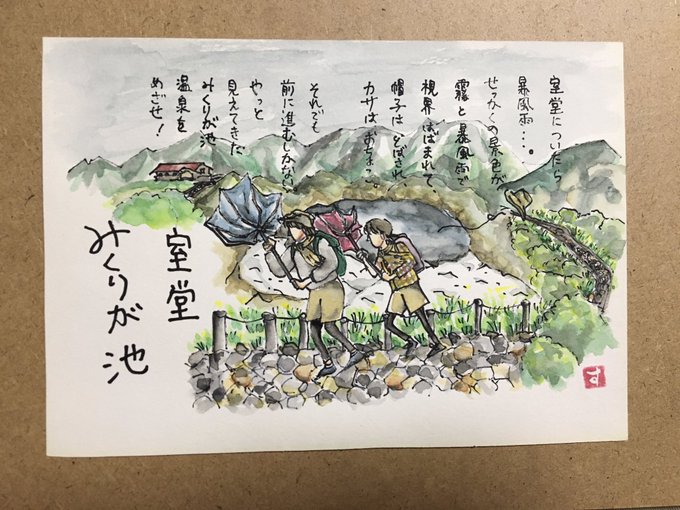 室堂についたら
暴風雨・・・。
せっかくの景色が
霧と暴風雨で
視界はばまれて、
帽子はとばされ、
カサはおちょこ。
それでも
前に進むしかない。
やっと
見えてきた
みくりが池
温泉を
めざせ！
室堂
みくりが池
す